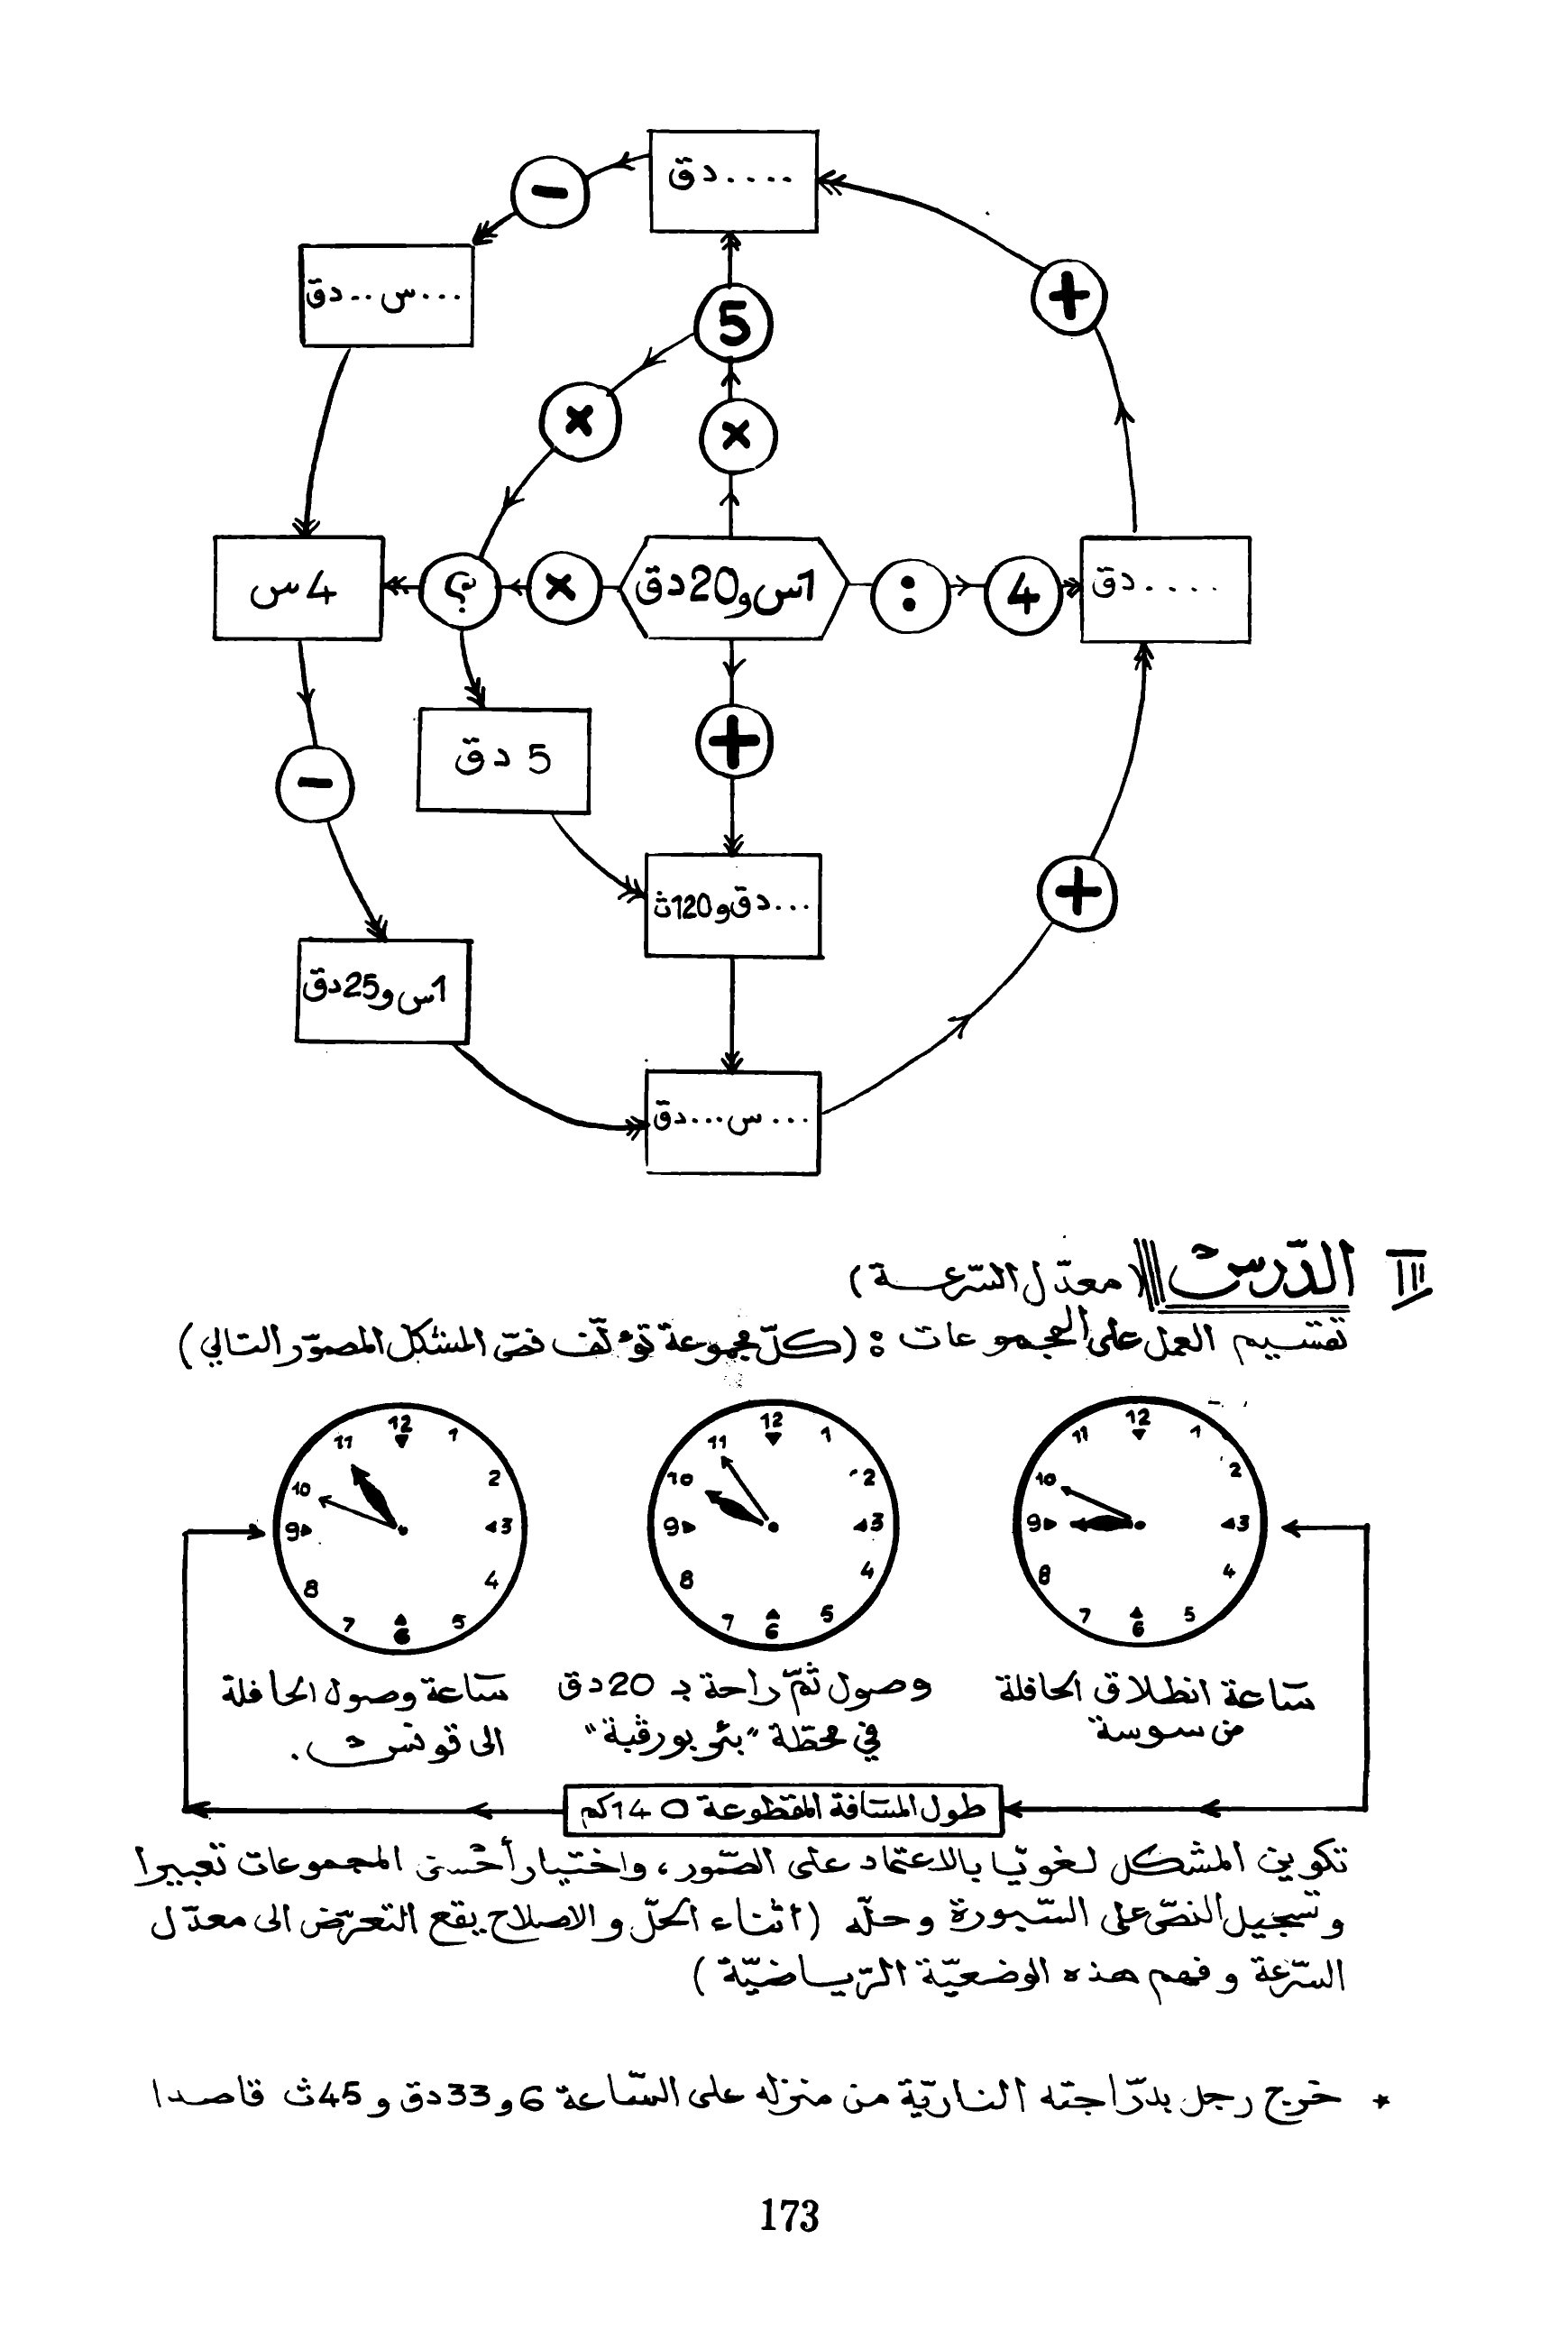 ....دق
−
...س..دق
+
5
×
×
4س
؟
×
1س و20دق
:
4
....دق
−
5 دق
+
...دق و120ث
+
1س و25دق
...س...دق
III الدّرس (معدّل السّرعة)
تقسيم العمل على المجموعات : (كلّ مجموعة تؤلّف نصّ المشكل المصوّر التالي)
12 1 2 3 4 5 6 7 8 9 10 11
12 1 2 3 4 5 6 7 8 9 10 11
12 1 2 3 4 5 6 7 8 9 10 11
ساعة انطلاق الحافلة
من سوسة
وصول ثمّ راحة بـ 20دق
في محطّة "بئر بورقبة"
ساعة وصول الحافلة
الى تونس.
طول المسافة المقطوعة 140كم
تكوين المشكل لغويّا بالاعتماد على الصّور، واختيار أحسن المجموعات تعبيرا
وتسجيل النصّ على السّبورة وحلّه (اثناء الحلّ والاصلاح يقع التعرّض الى معدّل
السّرعة وفهم هذه الوضعيّة الرّياضيّة)
* خرج رجل بدرّاجته الناريّة من منزله على السّاعة 6 و33دق و45ث قاصدا
173